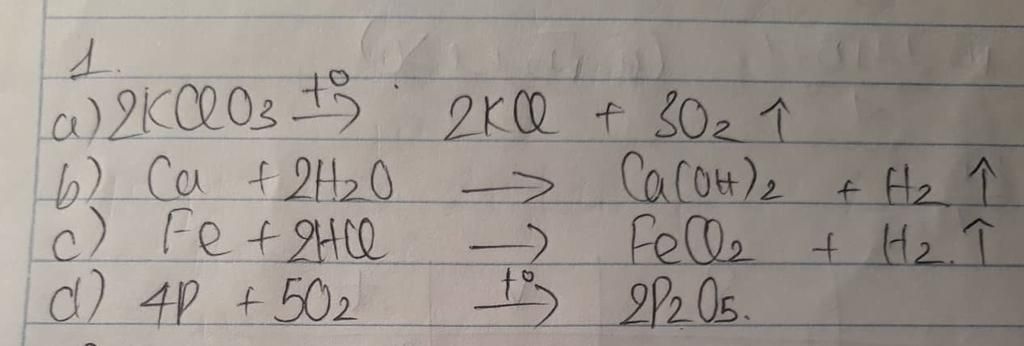 1.
a) 2KClO3 t° → 2KCl + 3O2 ↑
b) Ca + 2H2O → Ca(OH)2 + H2 ↑
c) Fe + 2HCl → FeCl2 + H2. ↑
d) 4P + 5O2 t° → 2P2O5.